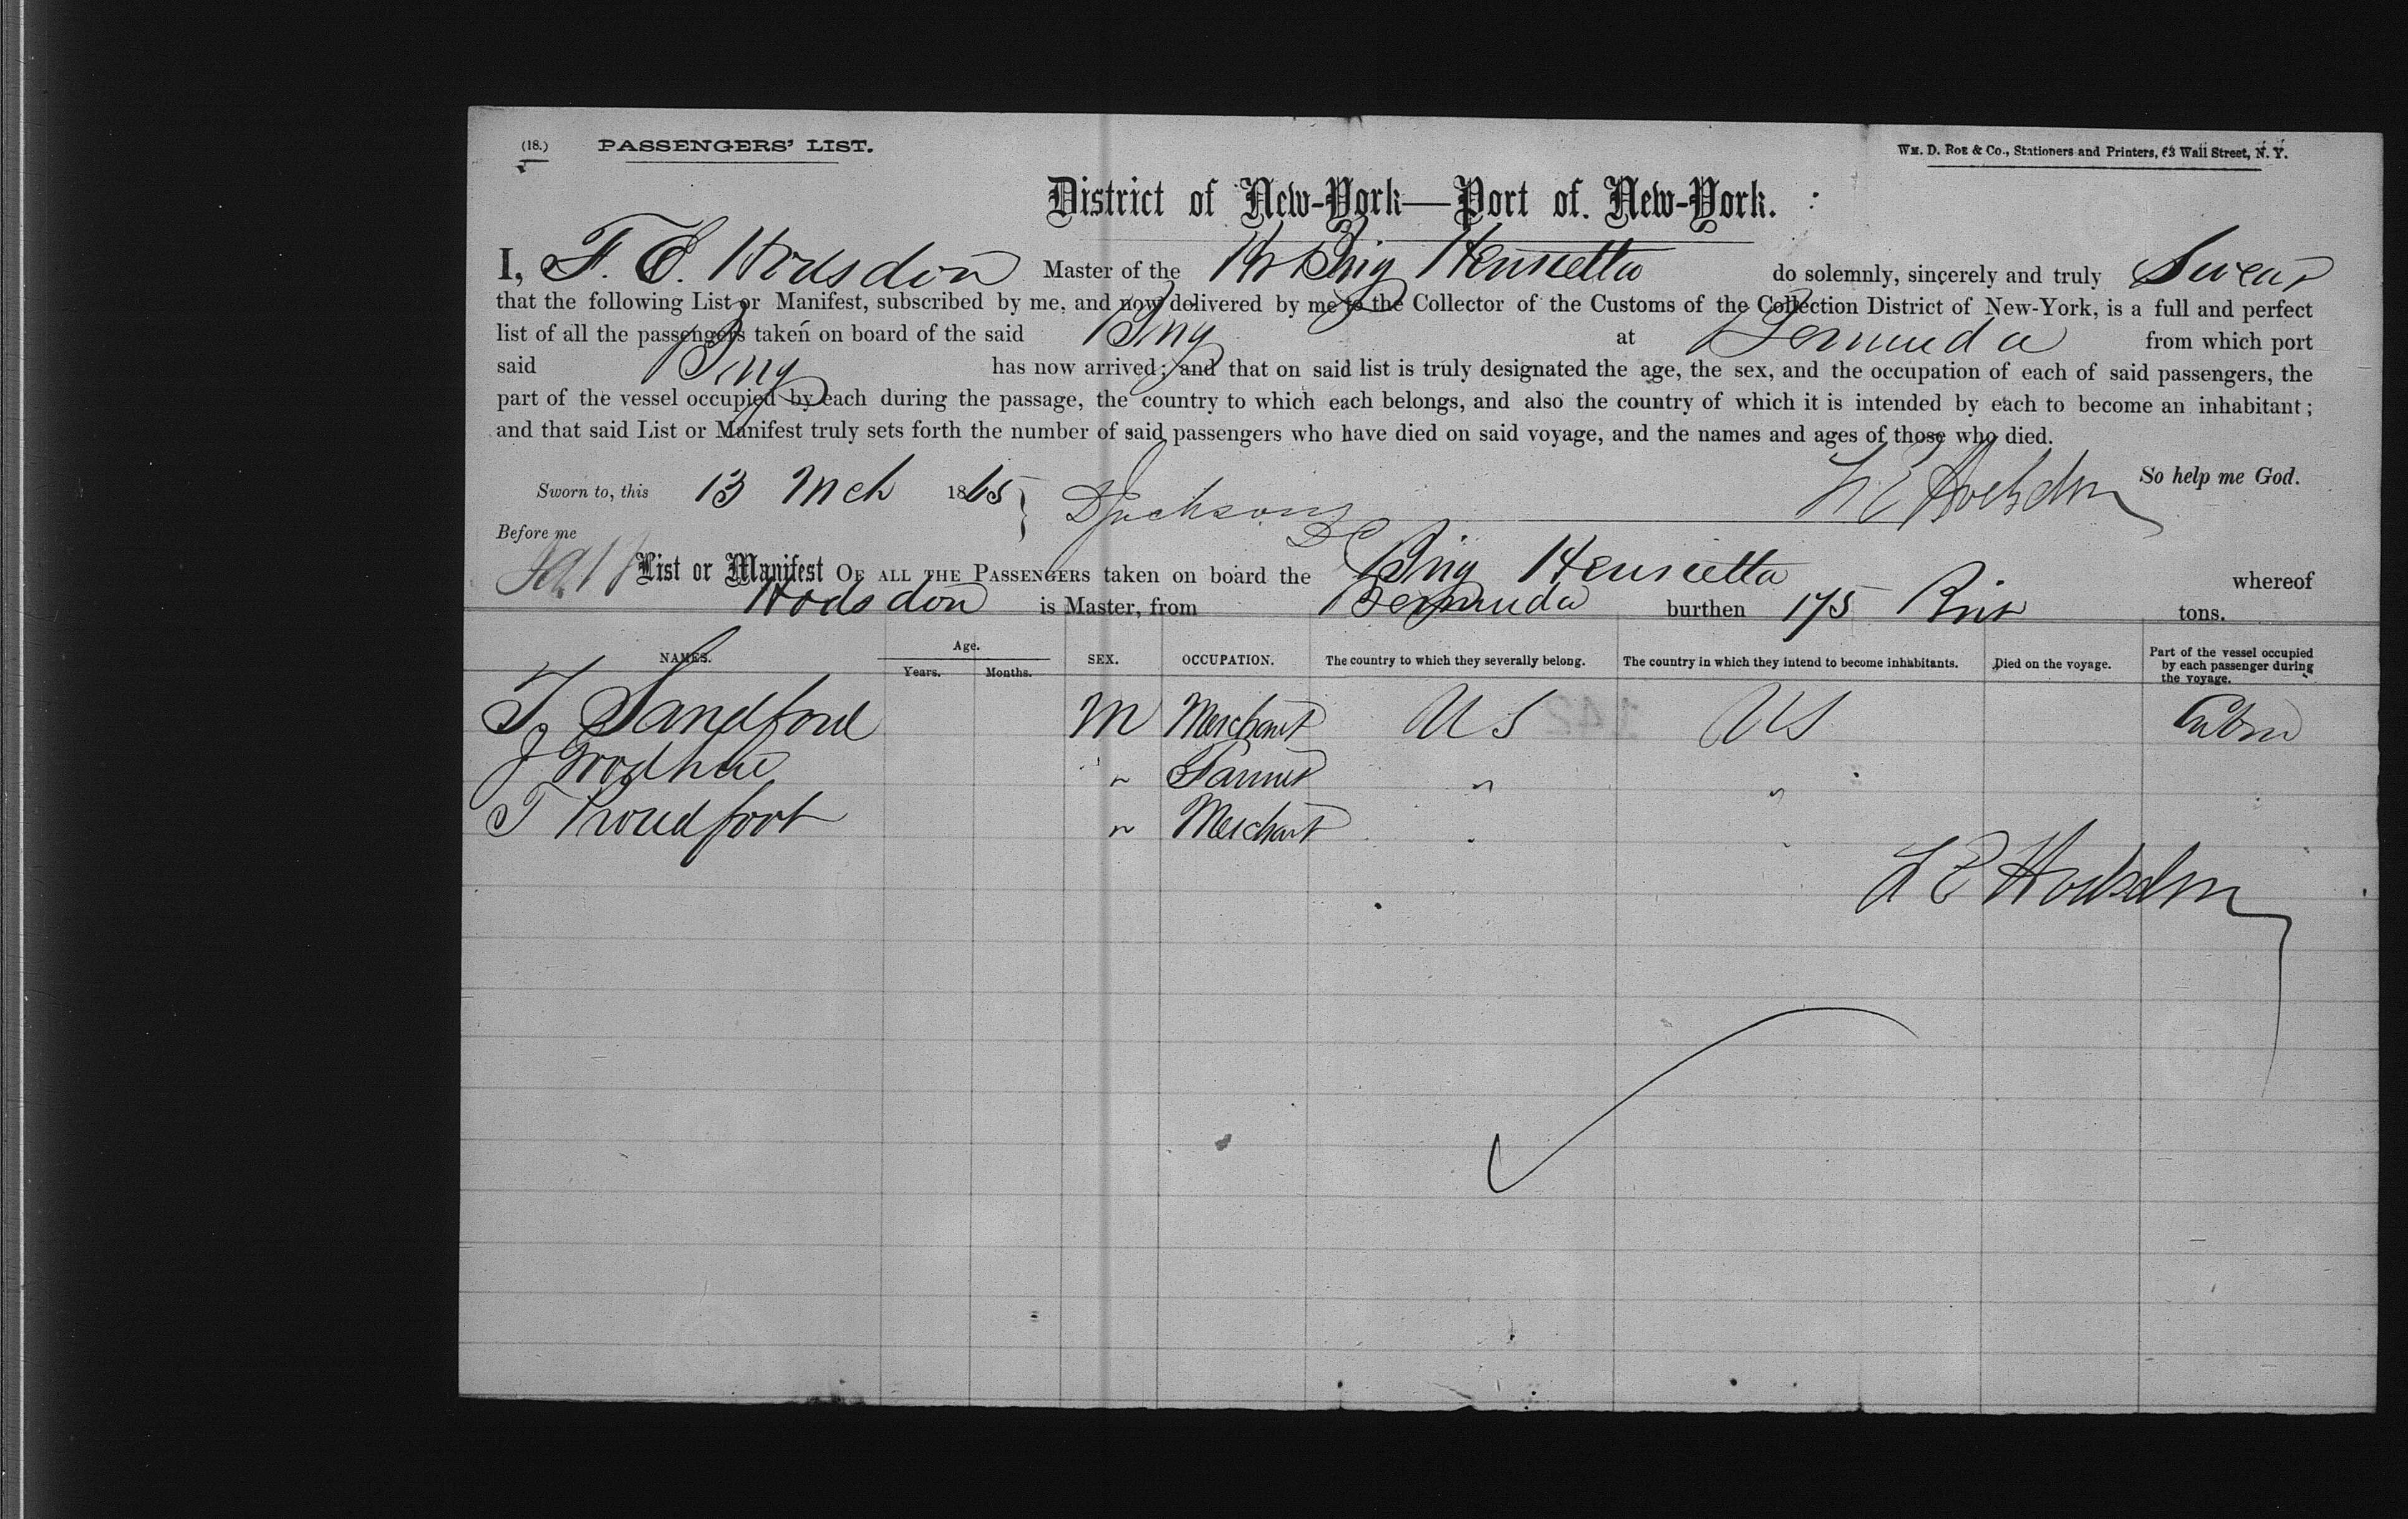 (18.) PASSENGERS' LIST. WM. D. ROE & Co., Stationers and Printers, 63 Wall Street, N. Y.
District of New-York—Port of New-York.
I, F. E. Hodsdon Master of the Br Brig Henrietta do solemnly, sincerely and truly Swear
that the following List or Manifest, subscribed by me, and now delivered by me to the Collector of the Customs of the Collection District of New-York, is a full and perfect
list of all the passengers taken on board of the said Brig at Bermuda from which port
said Brig has now arrived; and that on said list is truly designated the age, the sex, and the occupation of each of said passengers, the
part of the vessel occupied by each during the passage, the country to which each belongs, and also the country of which it is intended by each to become an inhabitant;
and that said List or Manifest truly sets forth the number of said passengers who have died on said voyage, and the names and ages of those who died.
So help me God.
Sworn to, this 13 Mch 1865 } D Jackson Hodsdon
Before me DC
List or Manifest OF ALL THE PASSENGERS taken on board the Brig Henrietta whereof
Hodsdon is Master, from Bermuda burthen 175 tons.
NAMES. Age. Years. Months. SEX. OCCUPATION. The country to which they severally belong. The country in which they intend to become inhabitants. Died on the voyage. Part of the vessel occupied by each passenger during the voyage.
T Sandford M Merchant US US Cabin
J " Farmer " "
T Proudfoot " Merchant " "
E Hodsdon
142